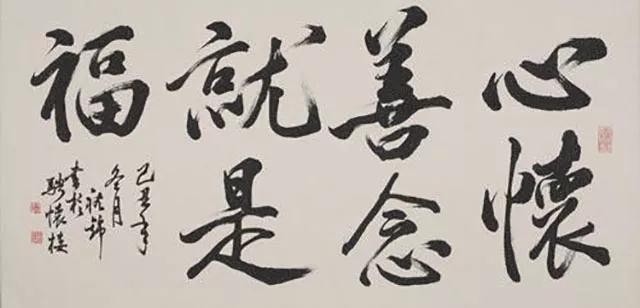 心懷
善念
就是
福
己丑年
冬月
錦
書於
騁懷樓